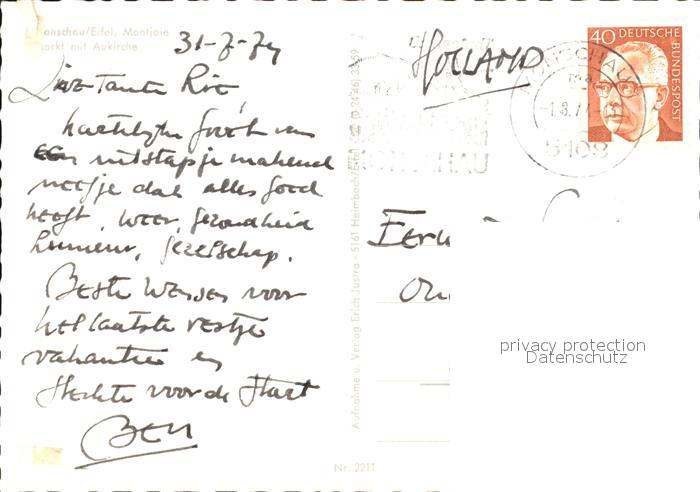 Monschau/Eifel, Montjoie
Markt mit Aukirche
31-7-74
Lieve Tante Rie
hartelijke groeten van
een uitstapje makend
neefje dat alles goed
heeft, weer, gezondheid
humeur, gezelschap.
Beste wensen voor
het laatste restje
vakantie en
sterkte voor de start
Ben
HOLLAND
40 DEUTSCHE
BUNDESPOST
MONSCHAU
-1.8.74
5108
MONSCHAU
Aufnahme u. Verlag Erich Justra - 5161 Heimbach/Eifel
Nr. 2211
privacy protection
Datenschutz